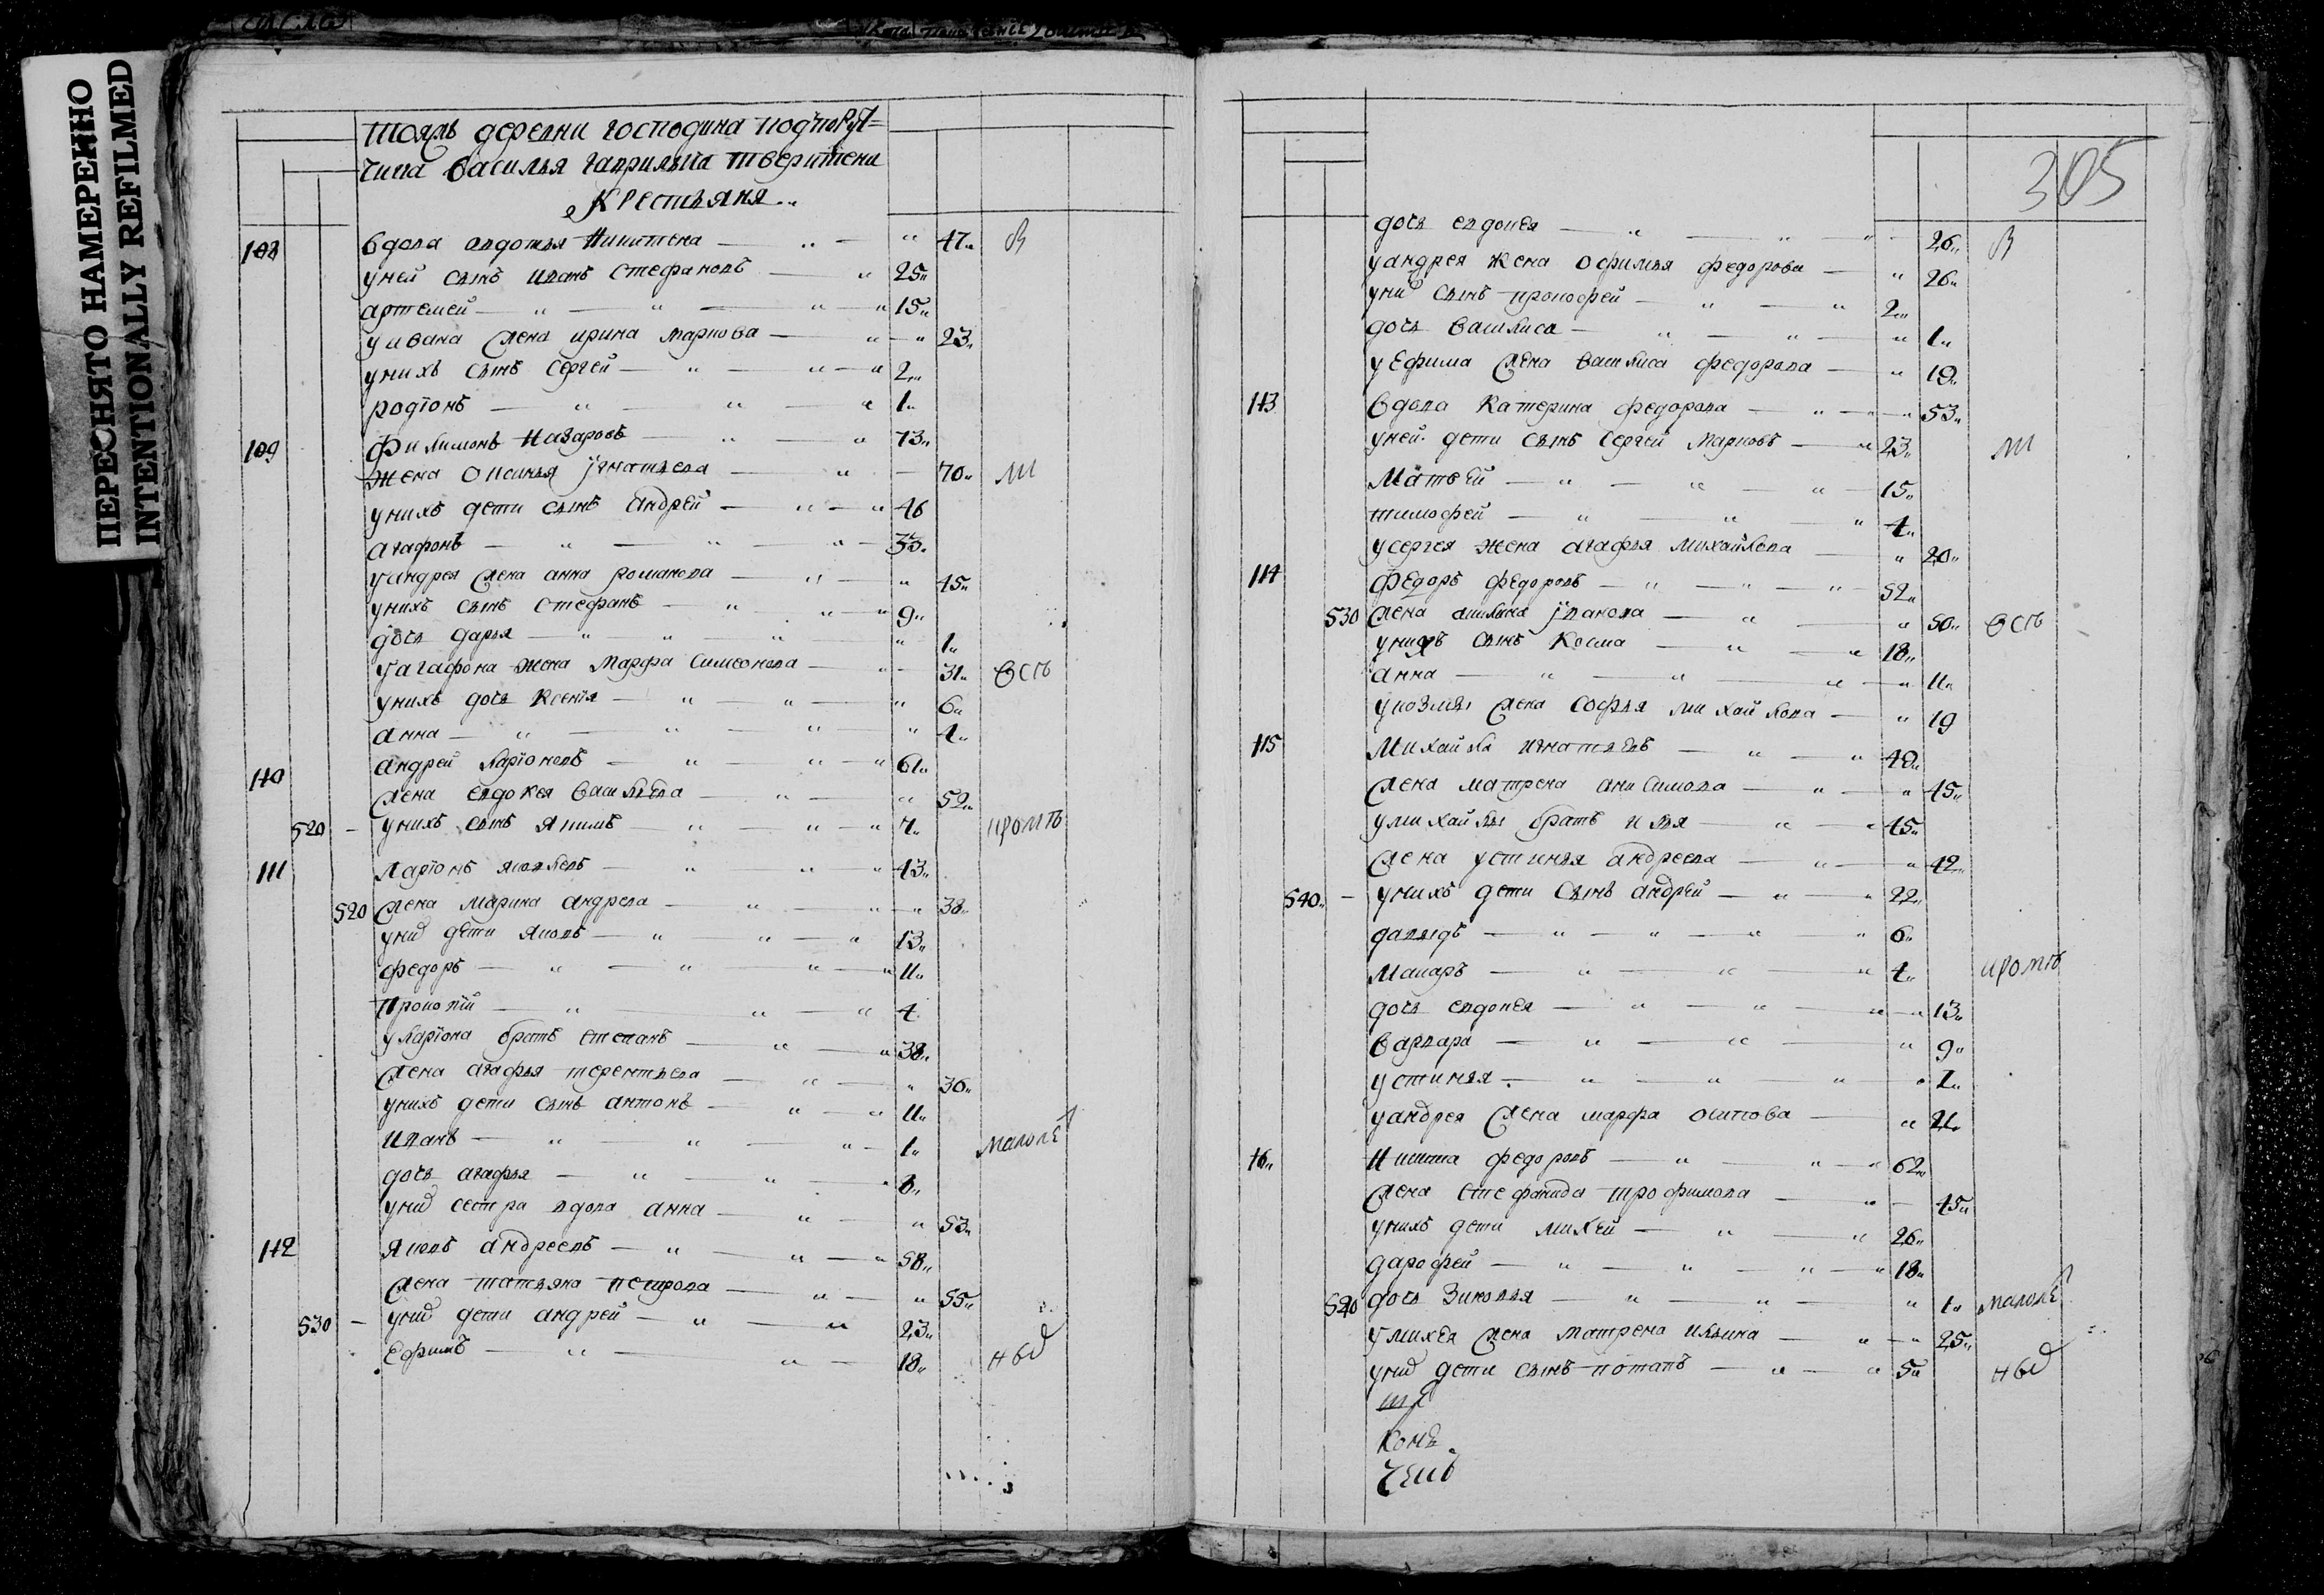 ПЕРЕСНЯТО НАМЕРЕННО
INTENTIONALLY REFILMED
тояжъ деревни господина подпорут=
чика василья гаврилыча тверитена
крестьяня
108 вдова авдотья Никитена 47 В
уней сынъ иванъ стефановъ 25
артемей 15
у ивана жена ирина маркова 23
унихъ сынъ сергей 2
родїонъ 1
109 Филимонъ Назаровъ 73
жена оксинья їгнатьева 70 М
унихъ дети сынъ андрей 46
агафонъ 33
уандрея жена анна романова 45
унихъ сынъ стефанъ 9
дочь дарья 1
уагафона жена марфа симеонова 31 ѲСТЬ
унихъ дочь ксенїя 6
анна 4
110 андрей ларїоновъ 61
жена евдокея васильева 52
520 унихъ сынъ якимъ 7 кромѣ
111 ларїонъ яковлевъ 43
520 жена марина андрева 38
уних дети яковъ 13
федоръ 11
прокопїй 4
уларїона братъ степанъ 38
жена агафья терентьева 36
унихъ дети сынъ антонъ 11
иванъ 1 малолѣ
дочь агафья 8
уних сестра вдова анна 53
112 яковъ андреевъ 58
жена татьяна петрова 55
530 уних дети андрей 23
ефимъ 18 ны
305
дочь евдокея 26 В
уандрея жена офимья федорова 26
уних сынъ прокофей 2
дочь василиса 1
уефима жена василиса федорова 19
113 вдова катерина федорова 53
уней дети сынъ сергей марковъ 23 М
матвей 15
тимофей 4
усергея жена агафья михайлова 20
114 федоръ федоровъ 52
530 жена їванова 50 ѲСТЬ
унихъ сынъ косма 18
анна 11
укозмы жена софья михайлова 19
115 михайла игнатьевъ 49
жена матрена анисимова 45
умихайлы братъ илья 45
жена устинья андреева 42
540 унихъ дети сынъ андрей 22
давыдъ 6
макаръ 4 кромѣ
дочь евдокея 13
варвара 9
устинья 2
уандрея жена марфа осипова 21
16 никита федоровъ 62
жена стефанида трофимова 45
унихъ дети михей 26
дарофей 18
520 дочь зиновья 1 малолѣ
умихея жена матрена ильина 25
уних дети сынъ потапъ 5 ны